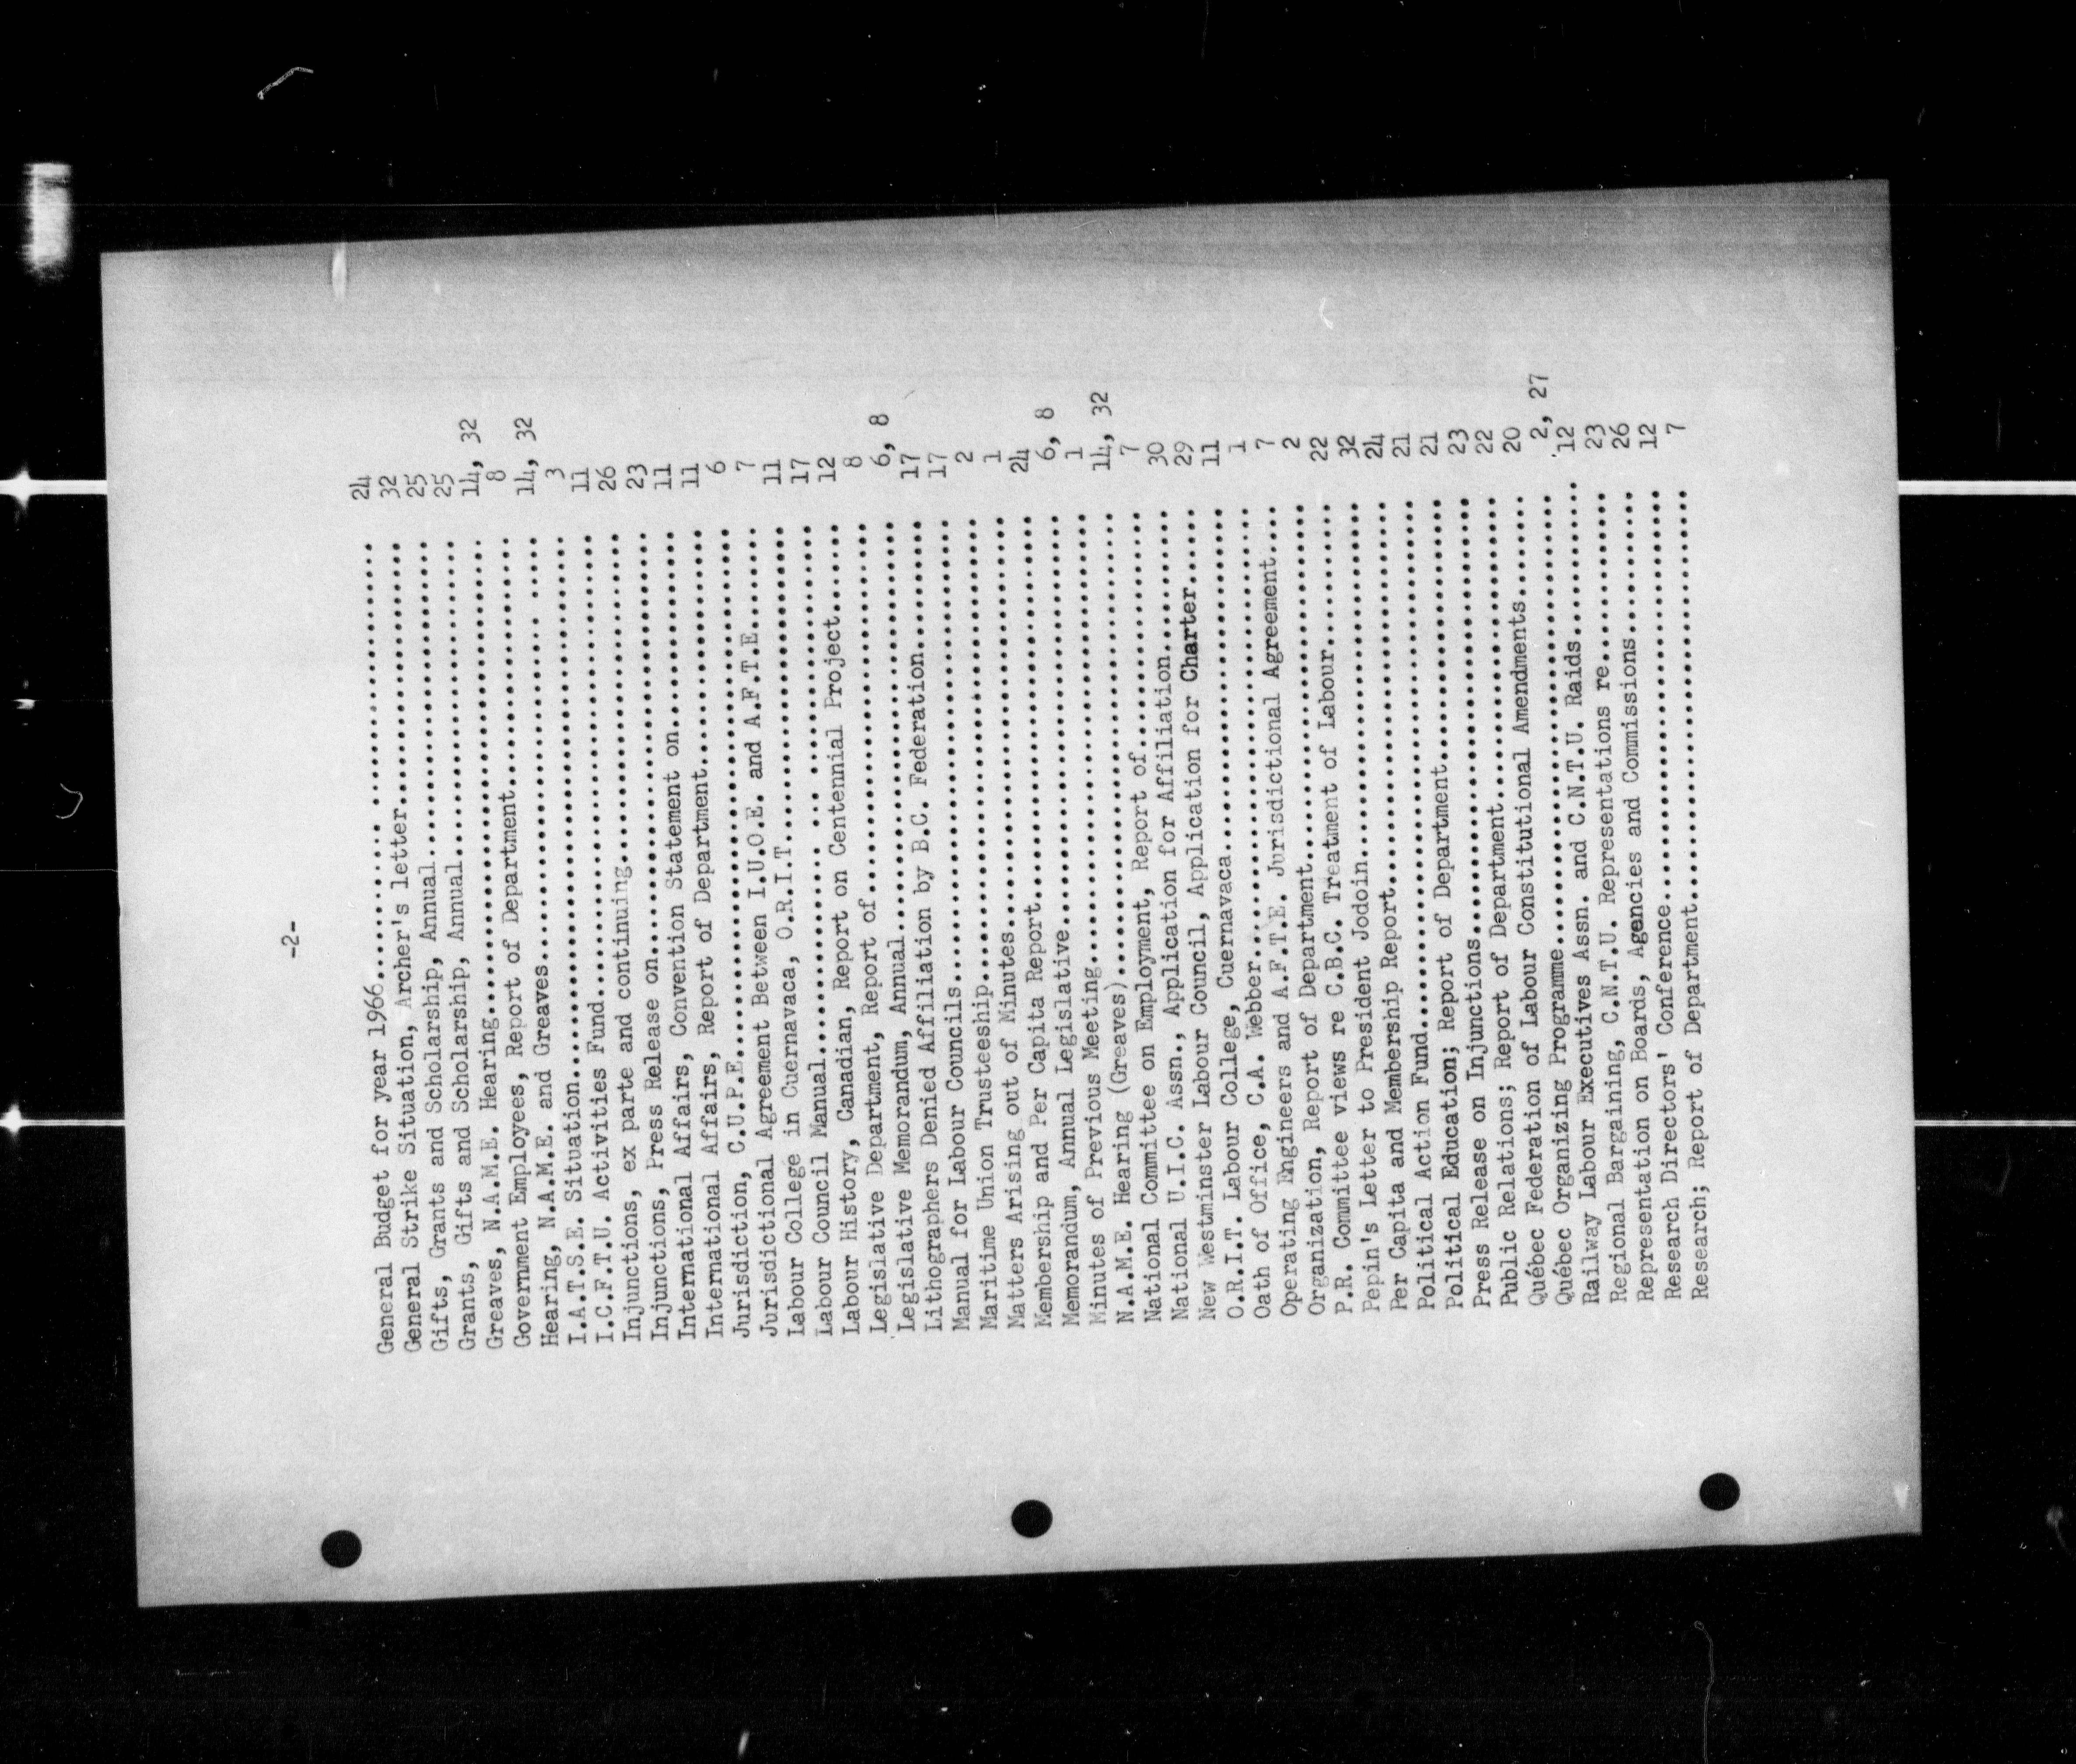 -2-
General Budget for year 1966.................................... 24
General Strike Situation, Archer's letter....................... 32
Gifts, Grants and Scholarship, Annual........................... 25
Grants, Gifts and Scholarship, Annual........................... 25
Greaves, N.A.M.E. Hearing....................................... 14, 32
Government Employees, Report of Department...................... 8
Hearing, N.A.M.E. and Greaves................................... 14, 32
I.A.T.S.E. Situation............................................ 3
I.C.F.T.U. Activities Fund...................................... 11
Injunctions, ex parte and continuing............................ 26
Injunctions, Press Release on................................... 23
International Affairs, Convention Statement on.................. 11
International Affairs, Report of Department..................... 11
Jurisdiction, C.U.P.E........................................... 6
Jurisdictional Agreement Between I.U.O.E. and A.F.T.E........... 7
Labour College in Cuernavaca, O.R.I.T........................... 11
Labour Council Manual........................................... 17
Labour History, Canadian, Report on Centennial Project.......... 12
Legislative Department, Report of............................... 8
Legislative Memorandum, Annual.................................. 6, 8
Lithographers Denied Affiliation by B.C. Federation............. 17
Manual for Labour Councils...................................... 17
Maritime Union Trusteeship...................................... 2
Matters Arising out of Minutes.................................. 1
Membership and Per Capita Report................................ 24
Memorandum, Annual Legislative.................................. 6, 8
Minutes of Previous Meeting..................................... 1
N.A.M.E. Hearing (Greaves)...................................... 14, 32
National Committee on Employment, Report of..................... 7
National U.I.C. Assn., Application for Affiliation.............. 30
New Westminster Labour Council, Application for Charter......... 29
O.R.I.T. Labour College, Cuernavaca............................. 11
Oath of Office, C.A. Webber..................................... 1
Operating Engineers and A.F.T.E. Jurisdictional Agreement....... 7
Organization, Report of Department.............................. 2
P.R. Committee views re C.B.C. Treatment of Labour.............. 22
Pepin's Letter to President Jodoin.............................. 32
Per Capita and Membership Report................................ 24
Political Action Fund........................................... 21
Political Education; Report of Department....................... 21
Press Release on Injunctions.................................... 23
Public Relations; Report of Department.......................... 22
Québec Federation of Labour Constitutional Amendments........... 20
Québec Organizing Programme..................................... 2, 27
Railway Labour Executives Assn. and C.N.T.U. Raids.............. 12
Regional Bargaining, C.N.T.U. Representations re................ 23
Representation on Boards, Agencies and Commissions.............. 26
Research Directors' Conference.................................. 12
Research; Report of Department.................................. 7